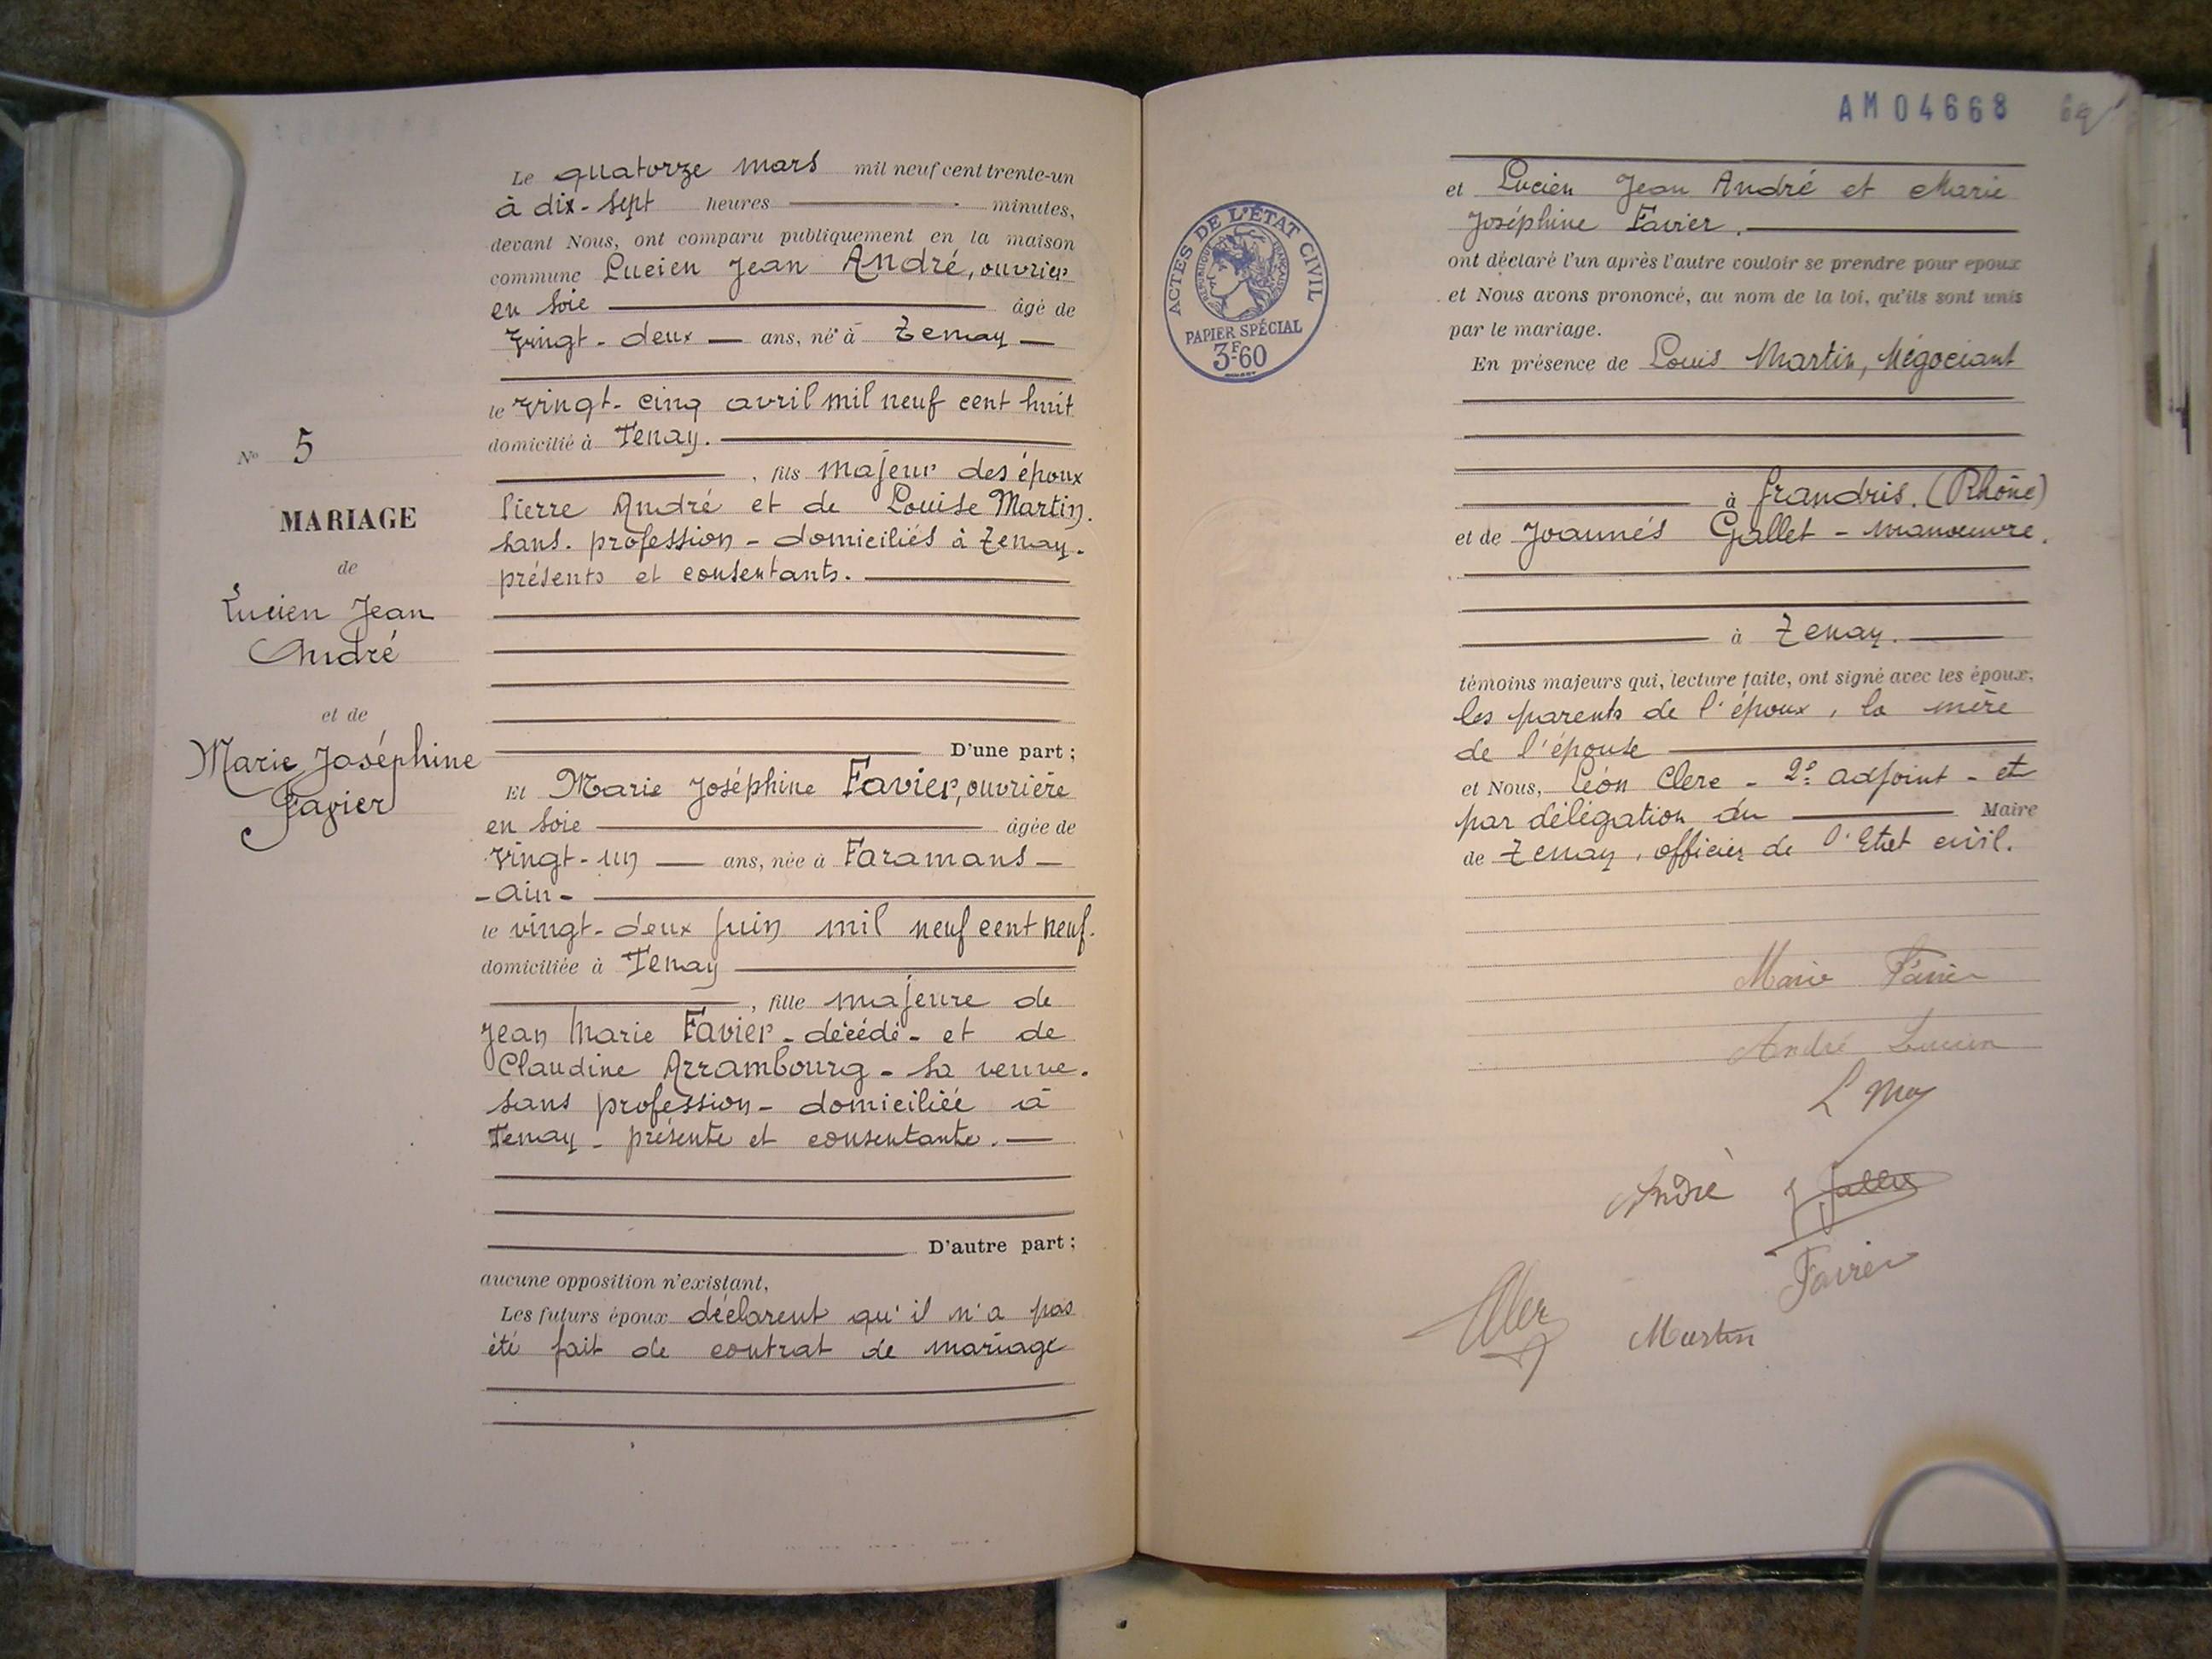 Le quatorze mars mil neuf cent trente-un
à dix-sept heures minutes,
devant Nous, ont comparu publiquement en la maison
commune Lucien Jean André, ouvrier
en soie âgé de
vingt-deux ans, né à Tenay
le vingt-cinq avril mil neuf cent huit
domicilié à Tenay.
, fils majeur des époux
Pierre André et de Louise Martin.
sans profession - domiciliés à Tenay.
présents et consentants.
D'une part ;
Et Marie Joséphine Favier, ouvrière
en soie âgée de
vingt-un ans, née à Faramans
- Ain -
le vingt-deux juin mil neuf cent neuf.
domiciliée à Tenay
, fille majeure de
Jean Marie Favier - décédé - et de
Claudine Arrambourg - sa veuve.
sans profession - domiciliée à
Tenay - présente et consentante.
D'autre part ;
aucune opposition n'existant,
Les futurs époux déclarent qu'il n'a pas
été fait de contrat de mariage
No 5
MARIAGE
de
Lucien Jean
André
et de
Marie Joséphine
Favier
AM04668
69
ACTES DE L'ÉTAT CIVIL
RÉPUBLIQUE FRANÇAISE
PAPIER SPÉCIAL
3F.60
et Lucien Jean André et Marie
Joséphine Favier.
ont déclaré l'un après l'autre vouloir se prendre pour époux
et Nous avons prononcé, au nom de la loi, qu'ils sont unis
par le mariage.
En présence de Louis Martin, Négociant
à Grandris. (Rhône)
et de Joannès Gallet - manoeuvre.
à Tenay.
témoins majeurs qui, lecture faite, ont signé avec les époux,
les parents de l'époux, la mère
de l'épouse
et Nous, Léon Clerc - 2e adjoint - et
par délégation du Maire
de Tenay, officier de l'Etat civil.
Marie Favier
André Lucien
André
Favier
Martin